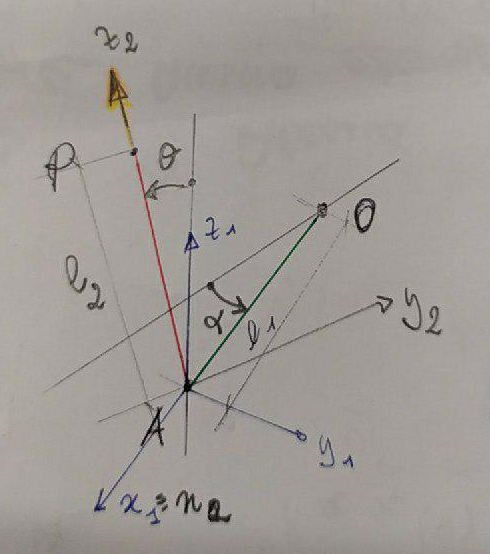 z₂
P
θ
z₁
O
l₂
α
l₁
y₂
A
y₁
x₁ = x₂